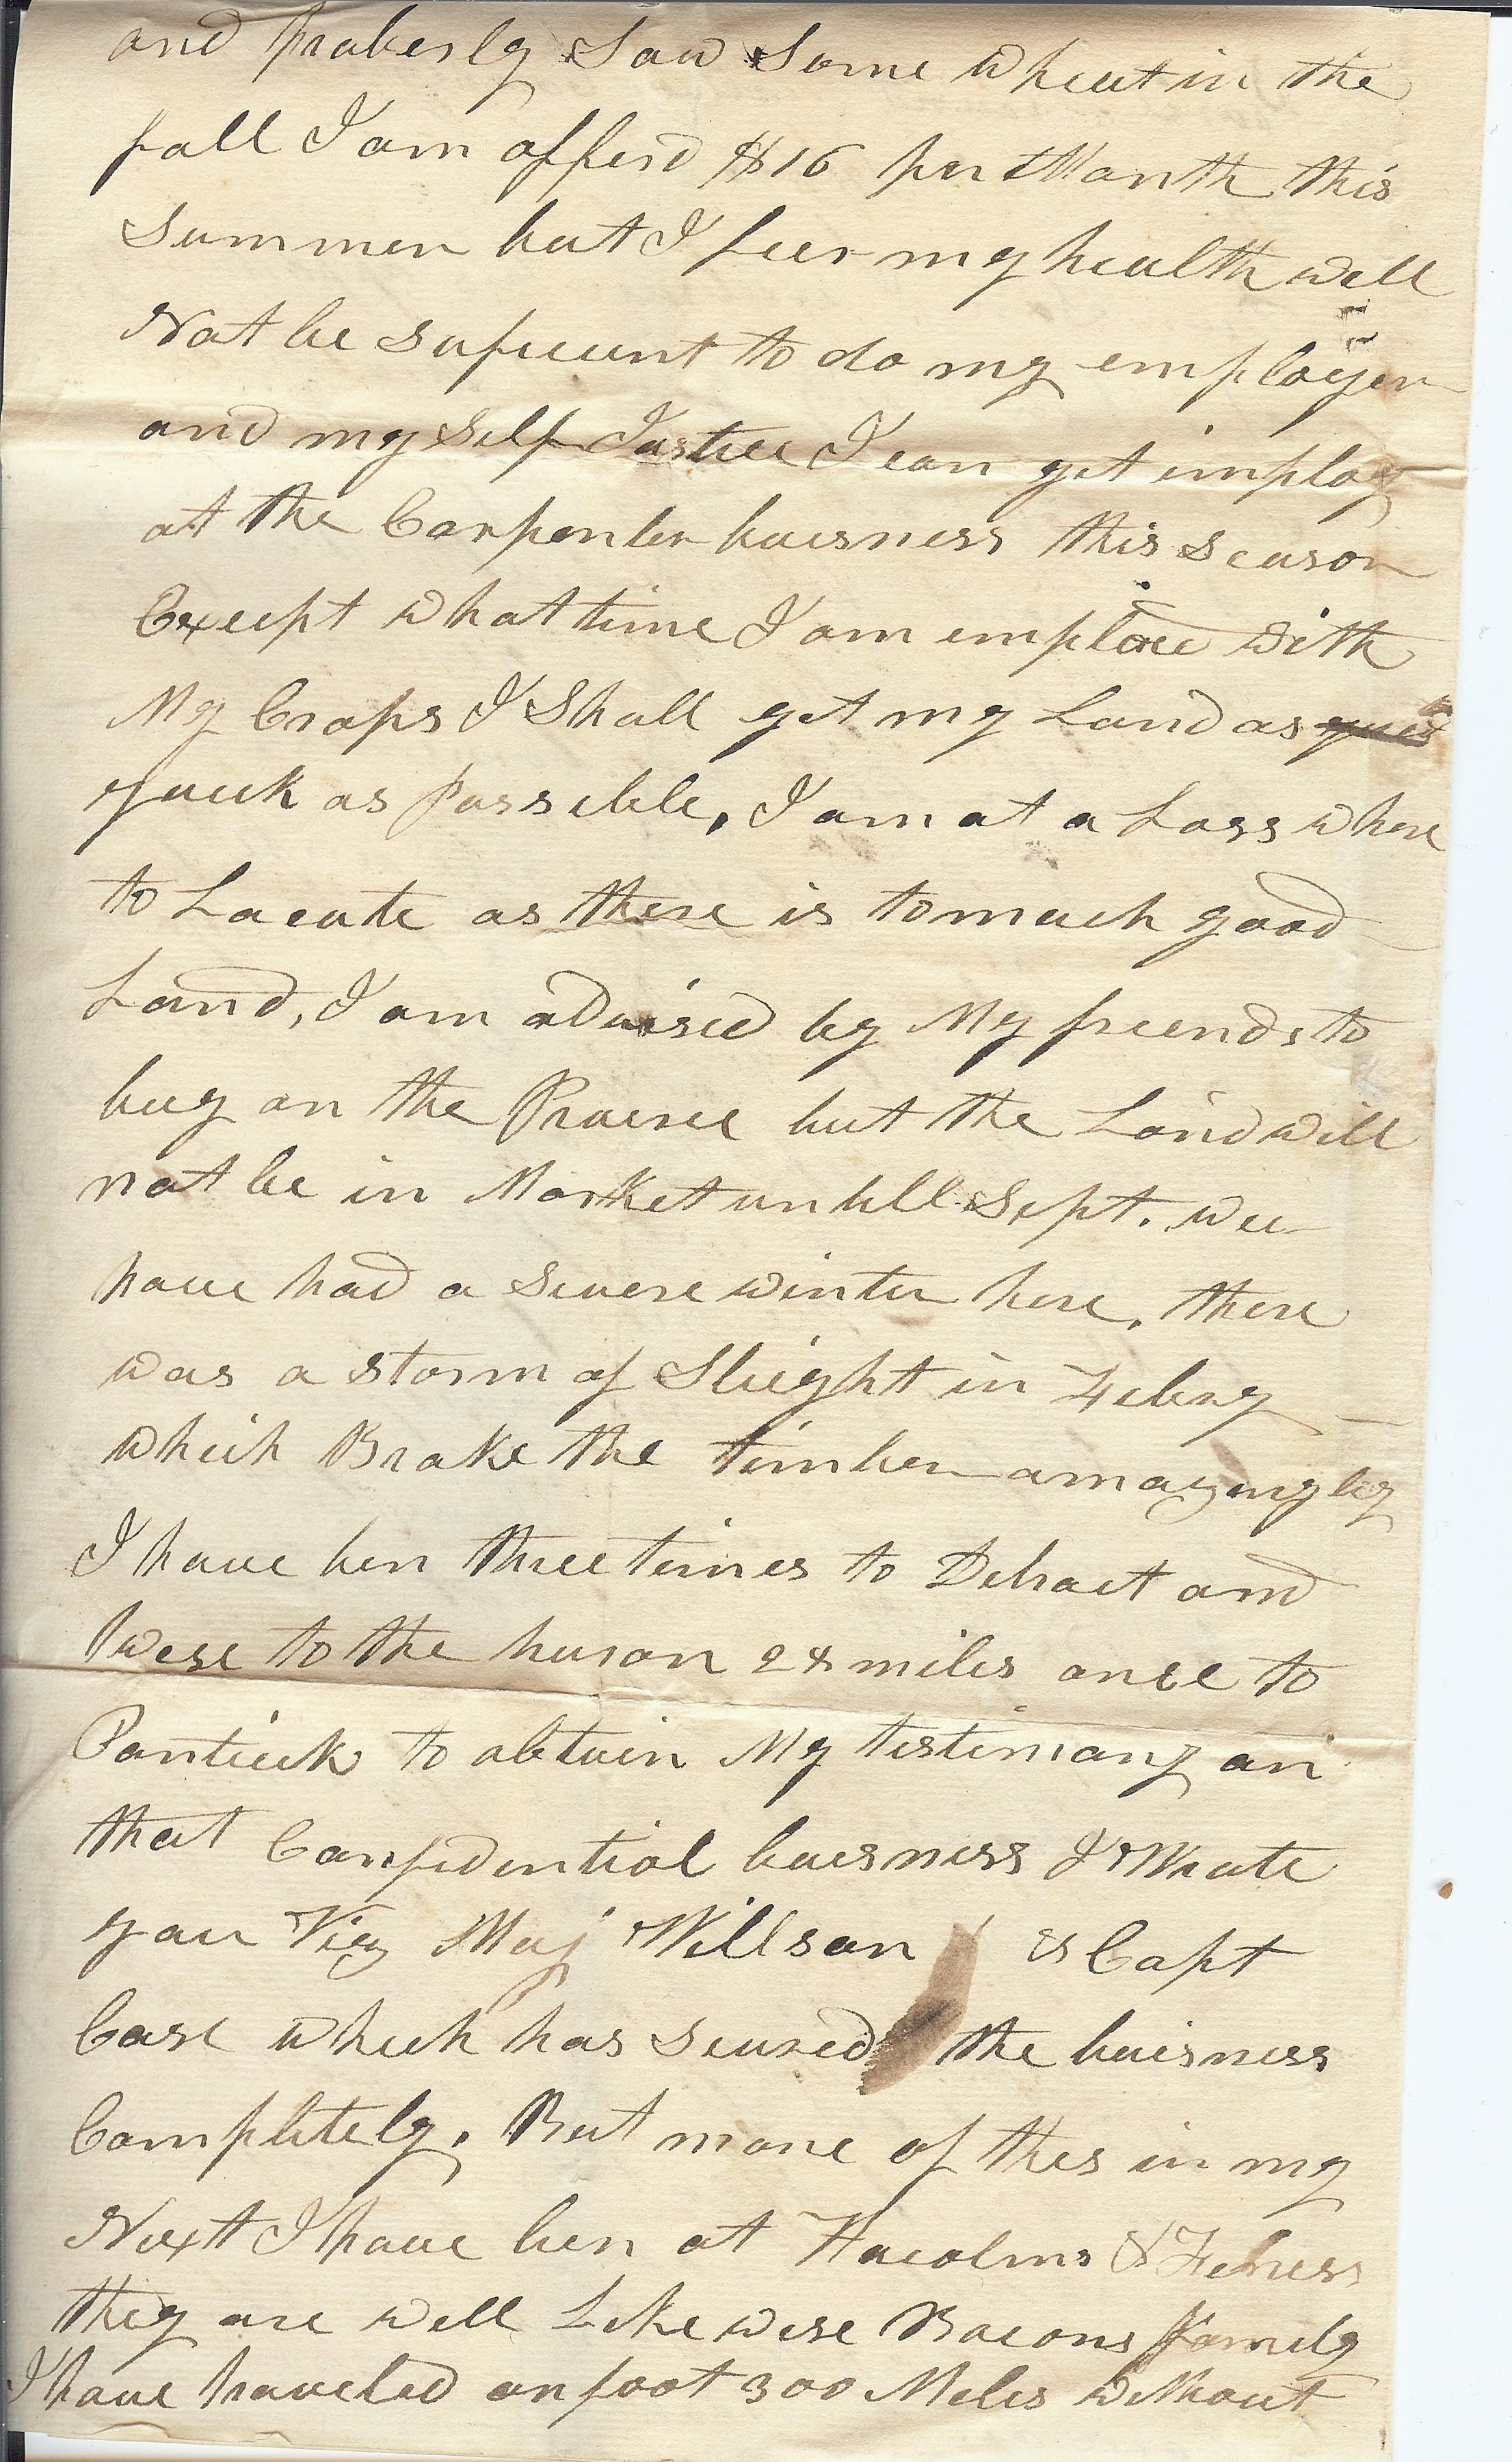 and proberly Sow Some wheat in the
fall I am offerd $16 per Month this
Summer but I feer my health will
Not be sufficient to do my employer
and my self Justice I can get imploy
at the Carpenter buisness this season
Except what time I am employe with
My Crops I Shall get my Land as
quick as Possible, I am at a Loss where
to Locate as there is to much good
Land, I am advised by My friends to
buy on the Prairie but the Land will
not be in Market untill Sept. we
have had a Severe winter here, there
was a storm of Sleight in Febry
which Brake the timber amazingly
I have ben three times to Detroit and
twise to the huron 28 miles once to
Pontiick to obtain My testimony on
that Confidential buisness I Wrote
you Viz Maj Willson & Capt
Case which has seured the buisness
Completely. But more of this in my
Next I have ben at &
they are well Likewise Bacons family
I have traveled on foot 300 Miles without